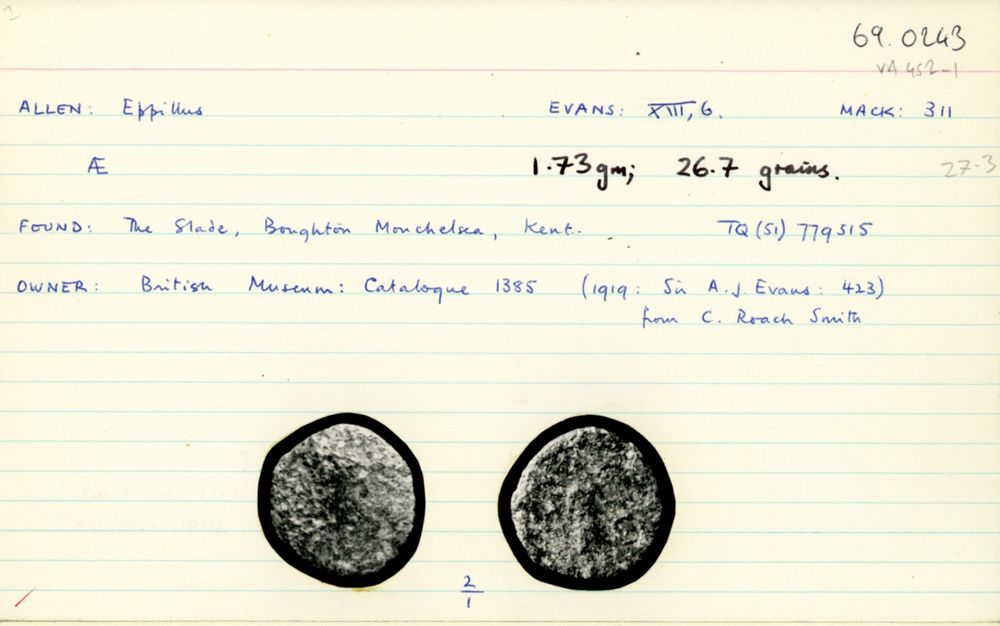 69.0243
VA 452-1
ALLEN: Eppillus EVANS: XIII, 6. MACK: 311
Æ 1.73gm; 26.7 grains. 27.3
FOUND: The Slade, Boughton Monchelsea, Kent. TQ (51) 779515
OWNER: British Museum: Catalogue 1385 (1919: Sir A.J. Evans: 423)
from C. Roach Smith
2
1